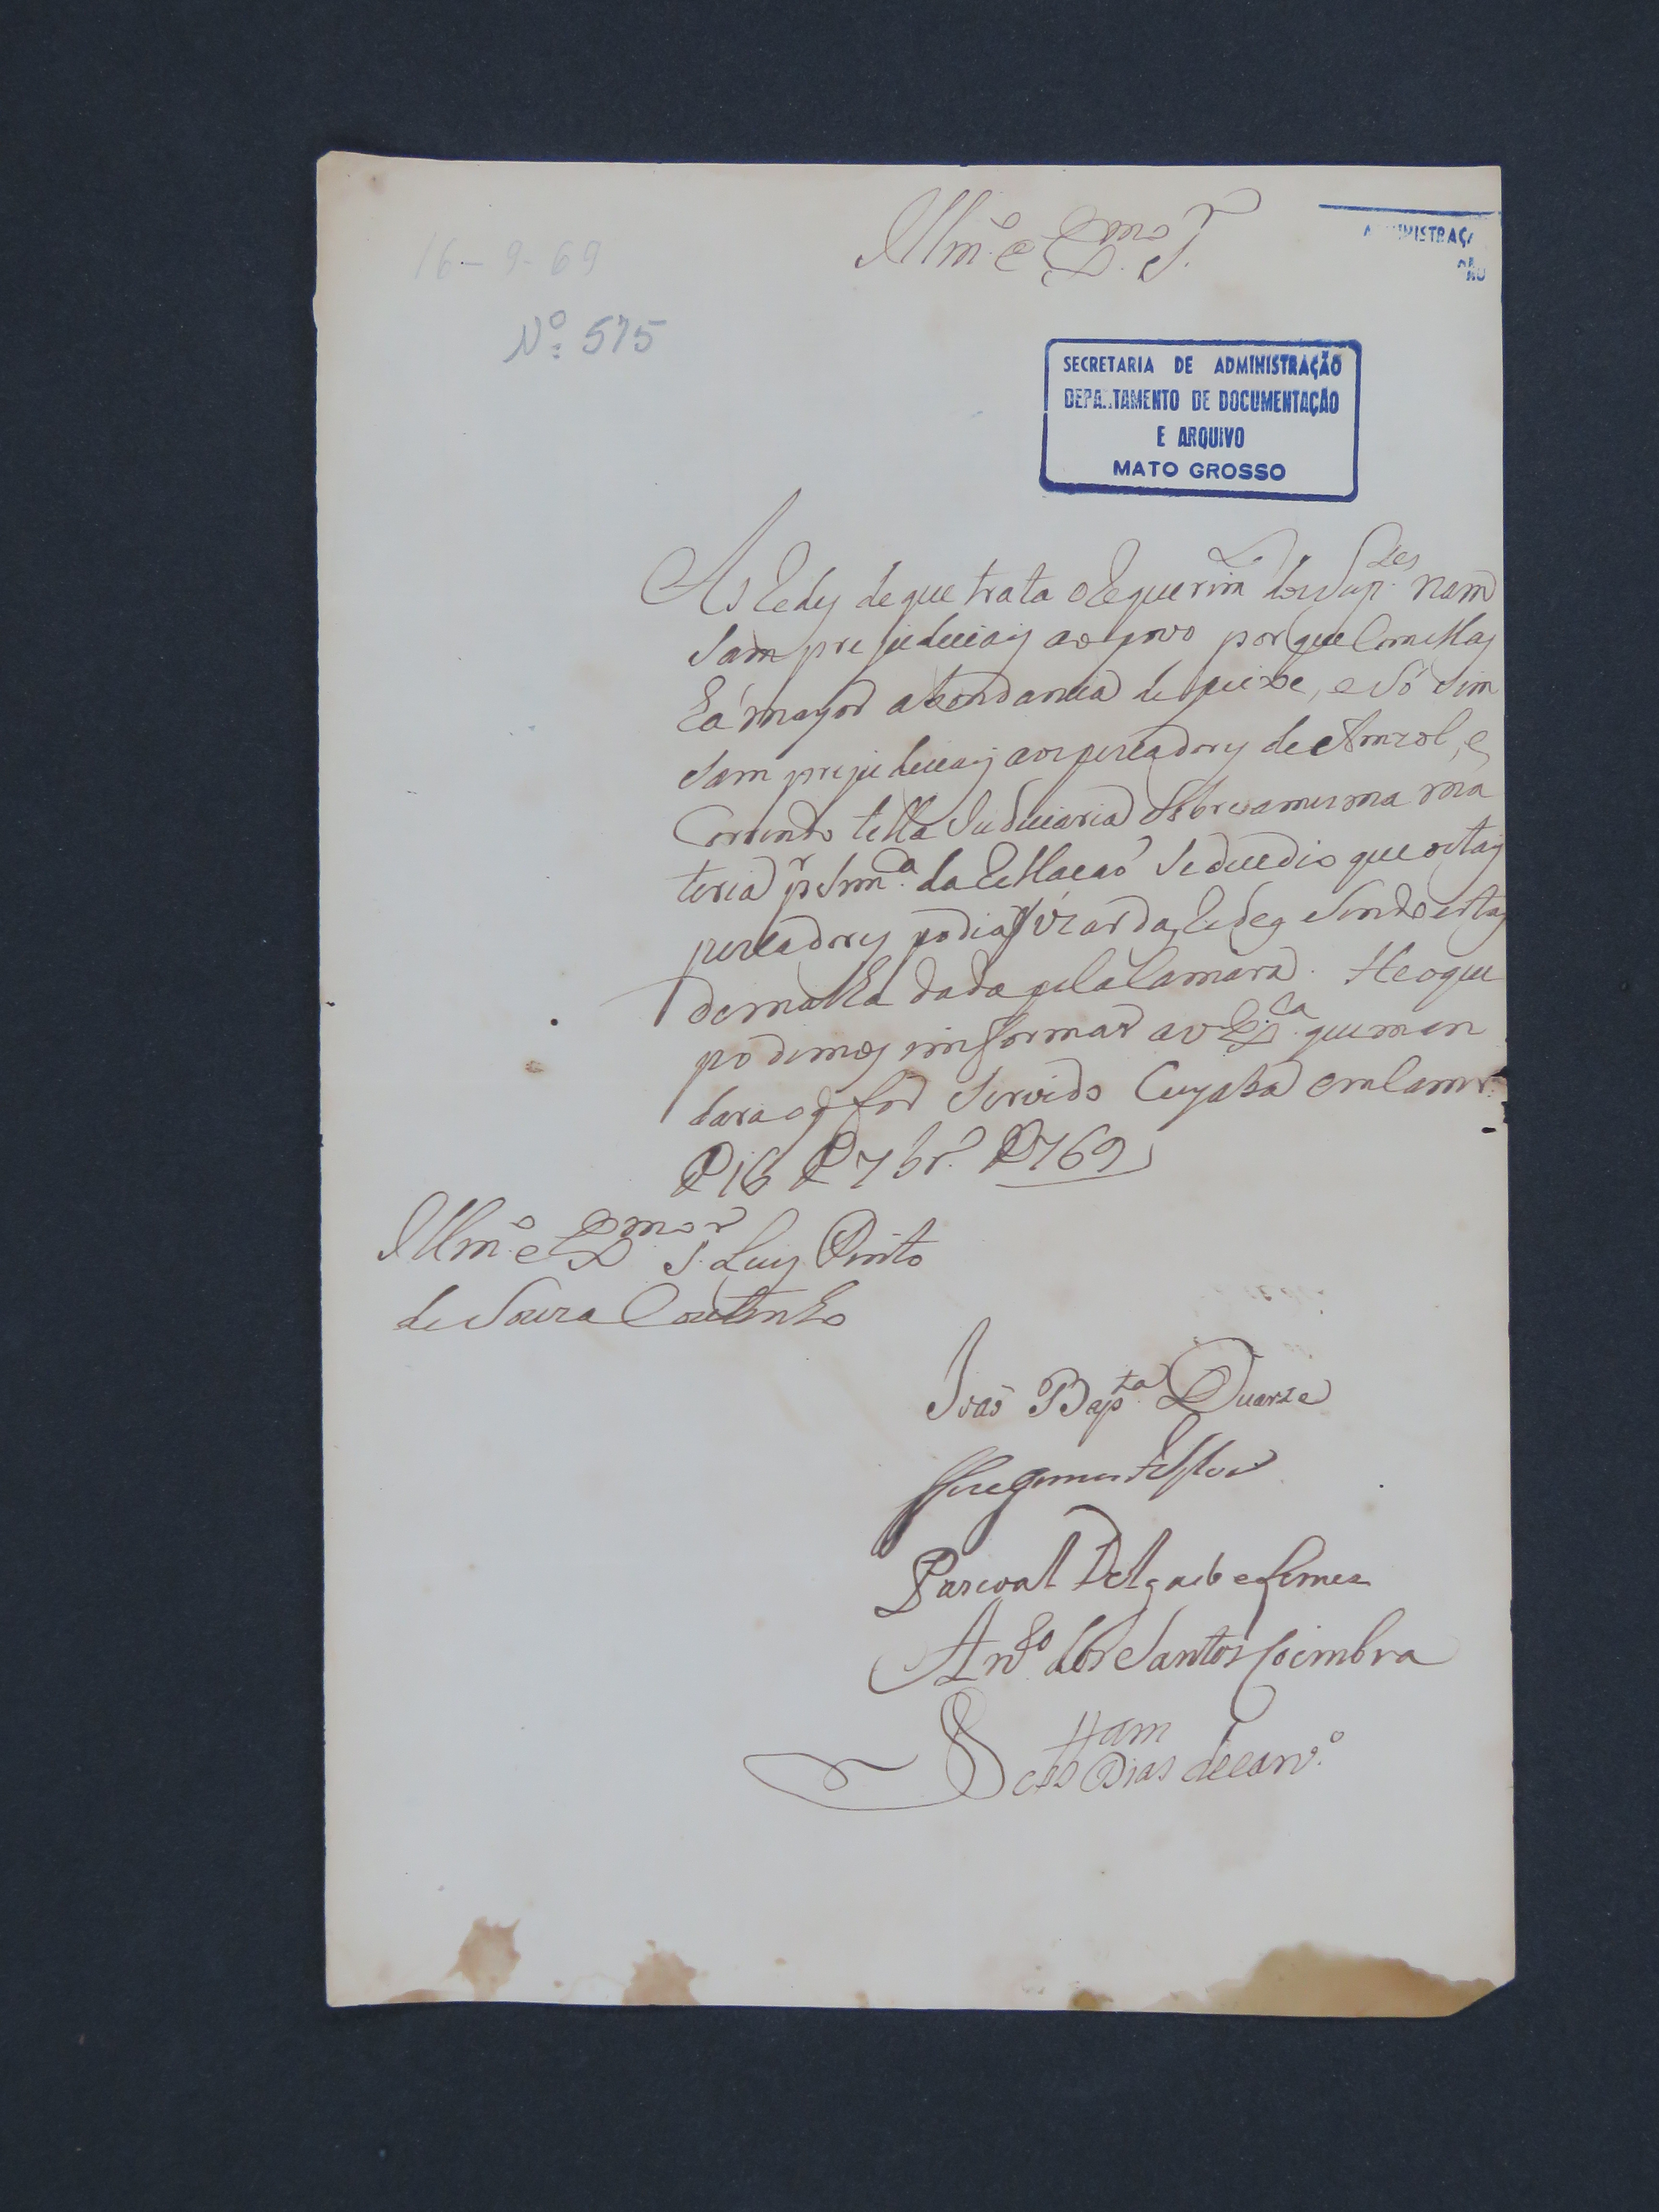 16-9-69
Nº 575
Illmº e Exmo Sr
SECRETARIA DE ADMINISTRAÇÃO
DEPARTAMENTO DE DOCUMENTAÇÃO
E ARQUIVO
MATO GROSSO
As Redes de que trata o Requerimto dos Suptes nam
sam prejudiciais ao povo porque com ellas
há mayor abondancia de peixe, e só sim
sam prejudiciais aos pescadores de Amzol, e
Correndo Lella Judiciaria sobre a mesma ma
teria pr Smnª da Rellação se decedio que os tais
pescadores podiaõ uzar das Redes sendo estas
de malha dada pela Camara. He o que
podemos imformar a V Exca que man
dara o q for servido Cuyabá em Camrª
D 16 D 7br.º D 769
Illmº e Exmo Sr Luiz Pinto
de Souza Coutinho
João Bapta Duarte
Pascoal Delgado e Lemez
Antº dos Santos Coimbra
Dias de Carvº